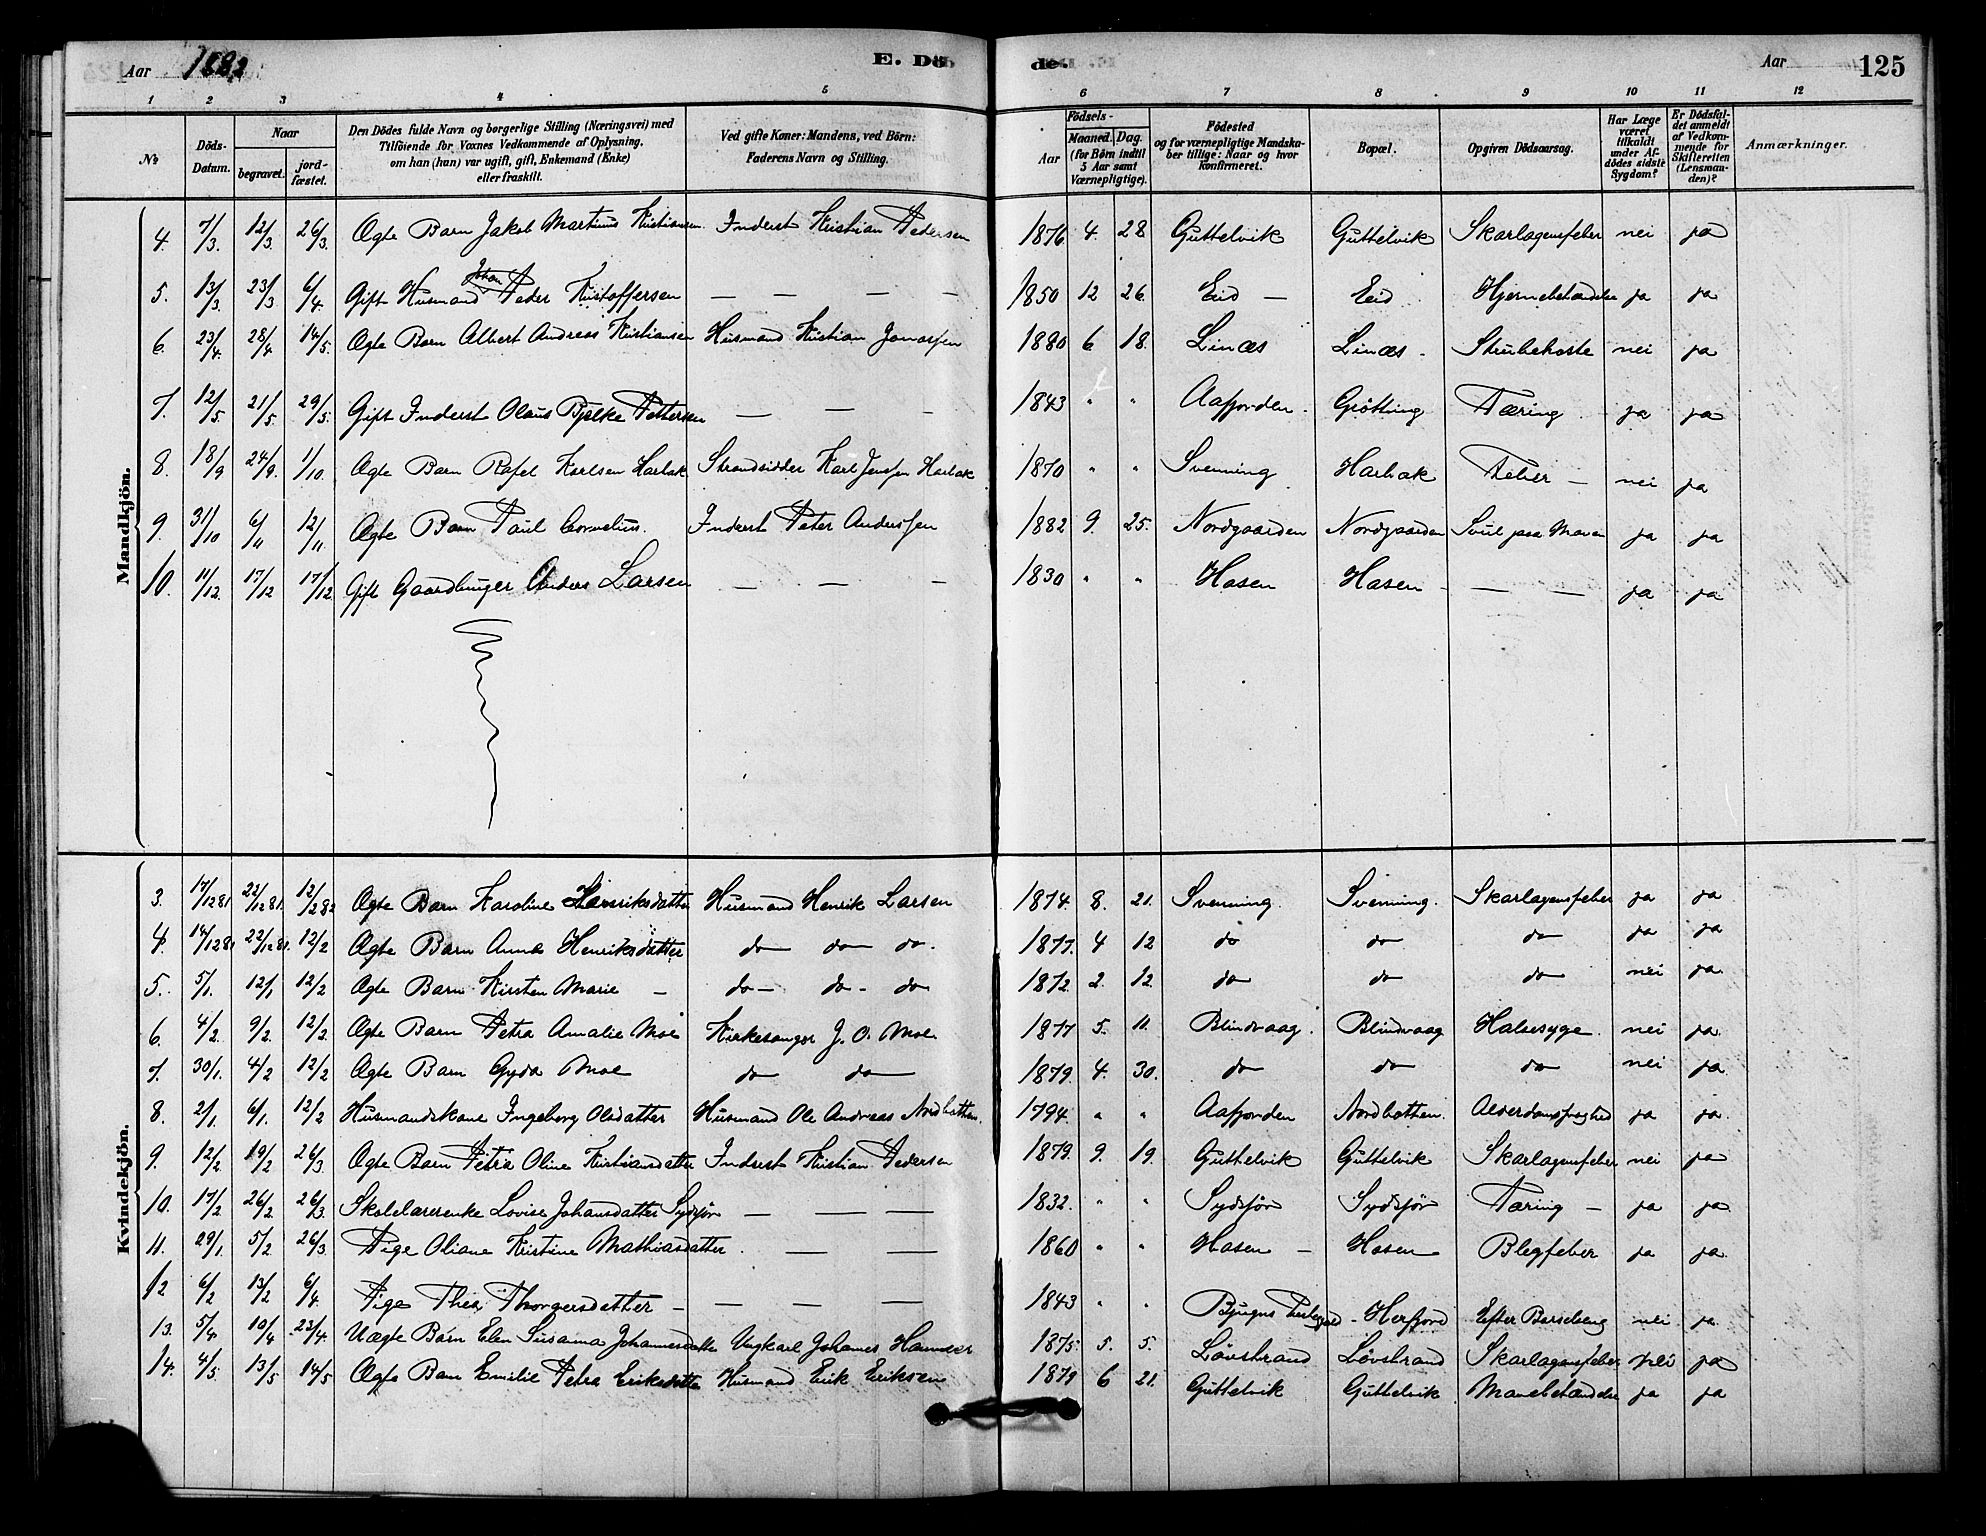 Aar 1882 E. Dö de. Aar 125
1 2 3 4 5 6 7 8 9 10 11 12
No Döds-Datum. Naar begravet. jordfæstet. Den Dödes fulde Navn og borgerlige Stilling (Næringsvei) med Tilföiende for Voxnes Vedkommende af Oplysning, om han (hun) var ugift, gift, Enkemand (Enke) eller fraskilt. Ved gifte Koner: Mandens, ved Börn: Faderens Navn og Stilling. Födsels- Aar Maaned. Dag. (for Börn indtil 5 Aar samt Værnepligtige). Födested og for værnepligtige Mandskaber tillige: Naar og hvor konfirmeret. Bopæl. Opgiven Dödsaarsag. Har Læge været tilkaldt under Afdödes sidste Sygdom? Er Dödsfaldet anmeldt af Vedkommende for Skifteretten (Lensmanden)? Anmærkninger.
Mandkjön.
4. 7/3. 12/3. 26/3. Ægte Barn Jakob Martinus Kristiansen. Inderst Kristian Pedersen 1876 4. 28 Guttelvik Guttelvik Skarlagensfeber nei ja
5. 13/3. 23/3 6/4. Gift Husmand Johan Peder Kristoffersen — — — — 1850 12 26. Eid — Eid Hjernebetændelse ja ja
6. 23/4. 28/4 14/5. Ægte Barn Albert Andreas Kristiansen Husmand Kristian Jonassen 1880 6 18. Linæs Linæs. Strubehoste nei ja
7. 12/5 21/5. 29/5. Gift Inderst Olaus Bjelke Pettersen — — - 1843 " " Aafjorden. Grötting Tæring ja ja
8. 18/9 24/9. 1/10. Ægte Barn Rafel Karlsen Harbak Strandsidder Karl Jensen Harbak 1870 " " Svenning Harbak Feber — nei ja
9. 31/10 6/11 12/11. Ægte Barn Paul Cornelius. Inderst Peter Anderssen 1882 9. 25. Nordgaarden Nordgaarden Svul paa Maven ja ja
10. 11/12. 17/12 17/12 Gift Gaardbruger Anders Larsen — — - 1830 " " Hasen Hasen - — — ja ja
Kvindekjön.
3. 17/12 81 22/12 81. 12/2 82 Ægte Barn Karoline Henriksdatter Husmand Henrik Larsen 1874. 8. 21. Svenning. Svenning. Skarlagensfeber ja ja
4. 14/12 81. 22/12 81. 12/2 Ægte Barn Anna Henriksdatter do do do. 1877. 4 12 do do do ja ja
5. 5/1. 12/1 12/2 Ægte Barn Kirsten Marie — do — do - do 1872. 2. 12. do do do nei ja
6. 4/2. 9/2. 12/2. Ægte Barn Petra Amalie Moe Kirkesanger J. O. Moe. 1877 5. 11. Blindvaag. Blindvaag Halssyge. nei ja
7. 30/1. 4/2 12/2 Ægte Barn Gyda Moe do do 1879. 4. 30. do do do nei ja
8. 2/1. 6/1. 12/2 Husmandskone Ingeborg Olsdatter Husmand Ole Andreas Nordbotten. 1794. " " Aafjorden Nordbotten. Alderdomssvaghed ja ja.
9. 12/2. 19/2 26/3. Ægte Barn Petra Oline Kristiansdatter Inderst Kristian Pedersen 1879. 9. 19. Guttelvik Guttelvik Skarlagensfeber nei ja
10. 17/2 26/2 26/3 Skolelærerenke Lovise Johansdatter Sydsjör — — — 1832. " " Sydsjör Sydsjör Tæring — ja ja
11. 29/1. 5/2 26/3. Pige Oliane Kristine Mathiasdatter. — — 1860 " " Hasen — Hasen Blegfeber ja ja.
12 6/2 13/2 6/4. Pige Thea Thorgersdatter — — — — 1843 " " Bjugns Herfjord Efter Barselseng nei ja
13. 5/4 10/4 23/4. Uægte Barn Elen Susanna Johannesdatter Ungkarl Johannes 1875. 5. 5. Lövstrand Lövstrand Skarlagensfeber nei ja
14. 4/5. 13/5 14/5 Ægte Barn Emilie Petra Eriksdatter Husmand Erik Eriksen 1879 6 21. Guttelvik Guttelvik Mavebetændelse ja ja